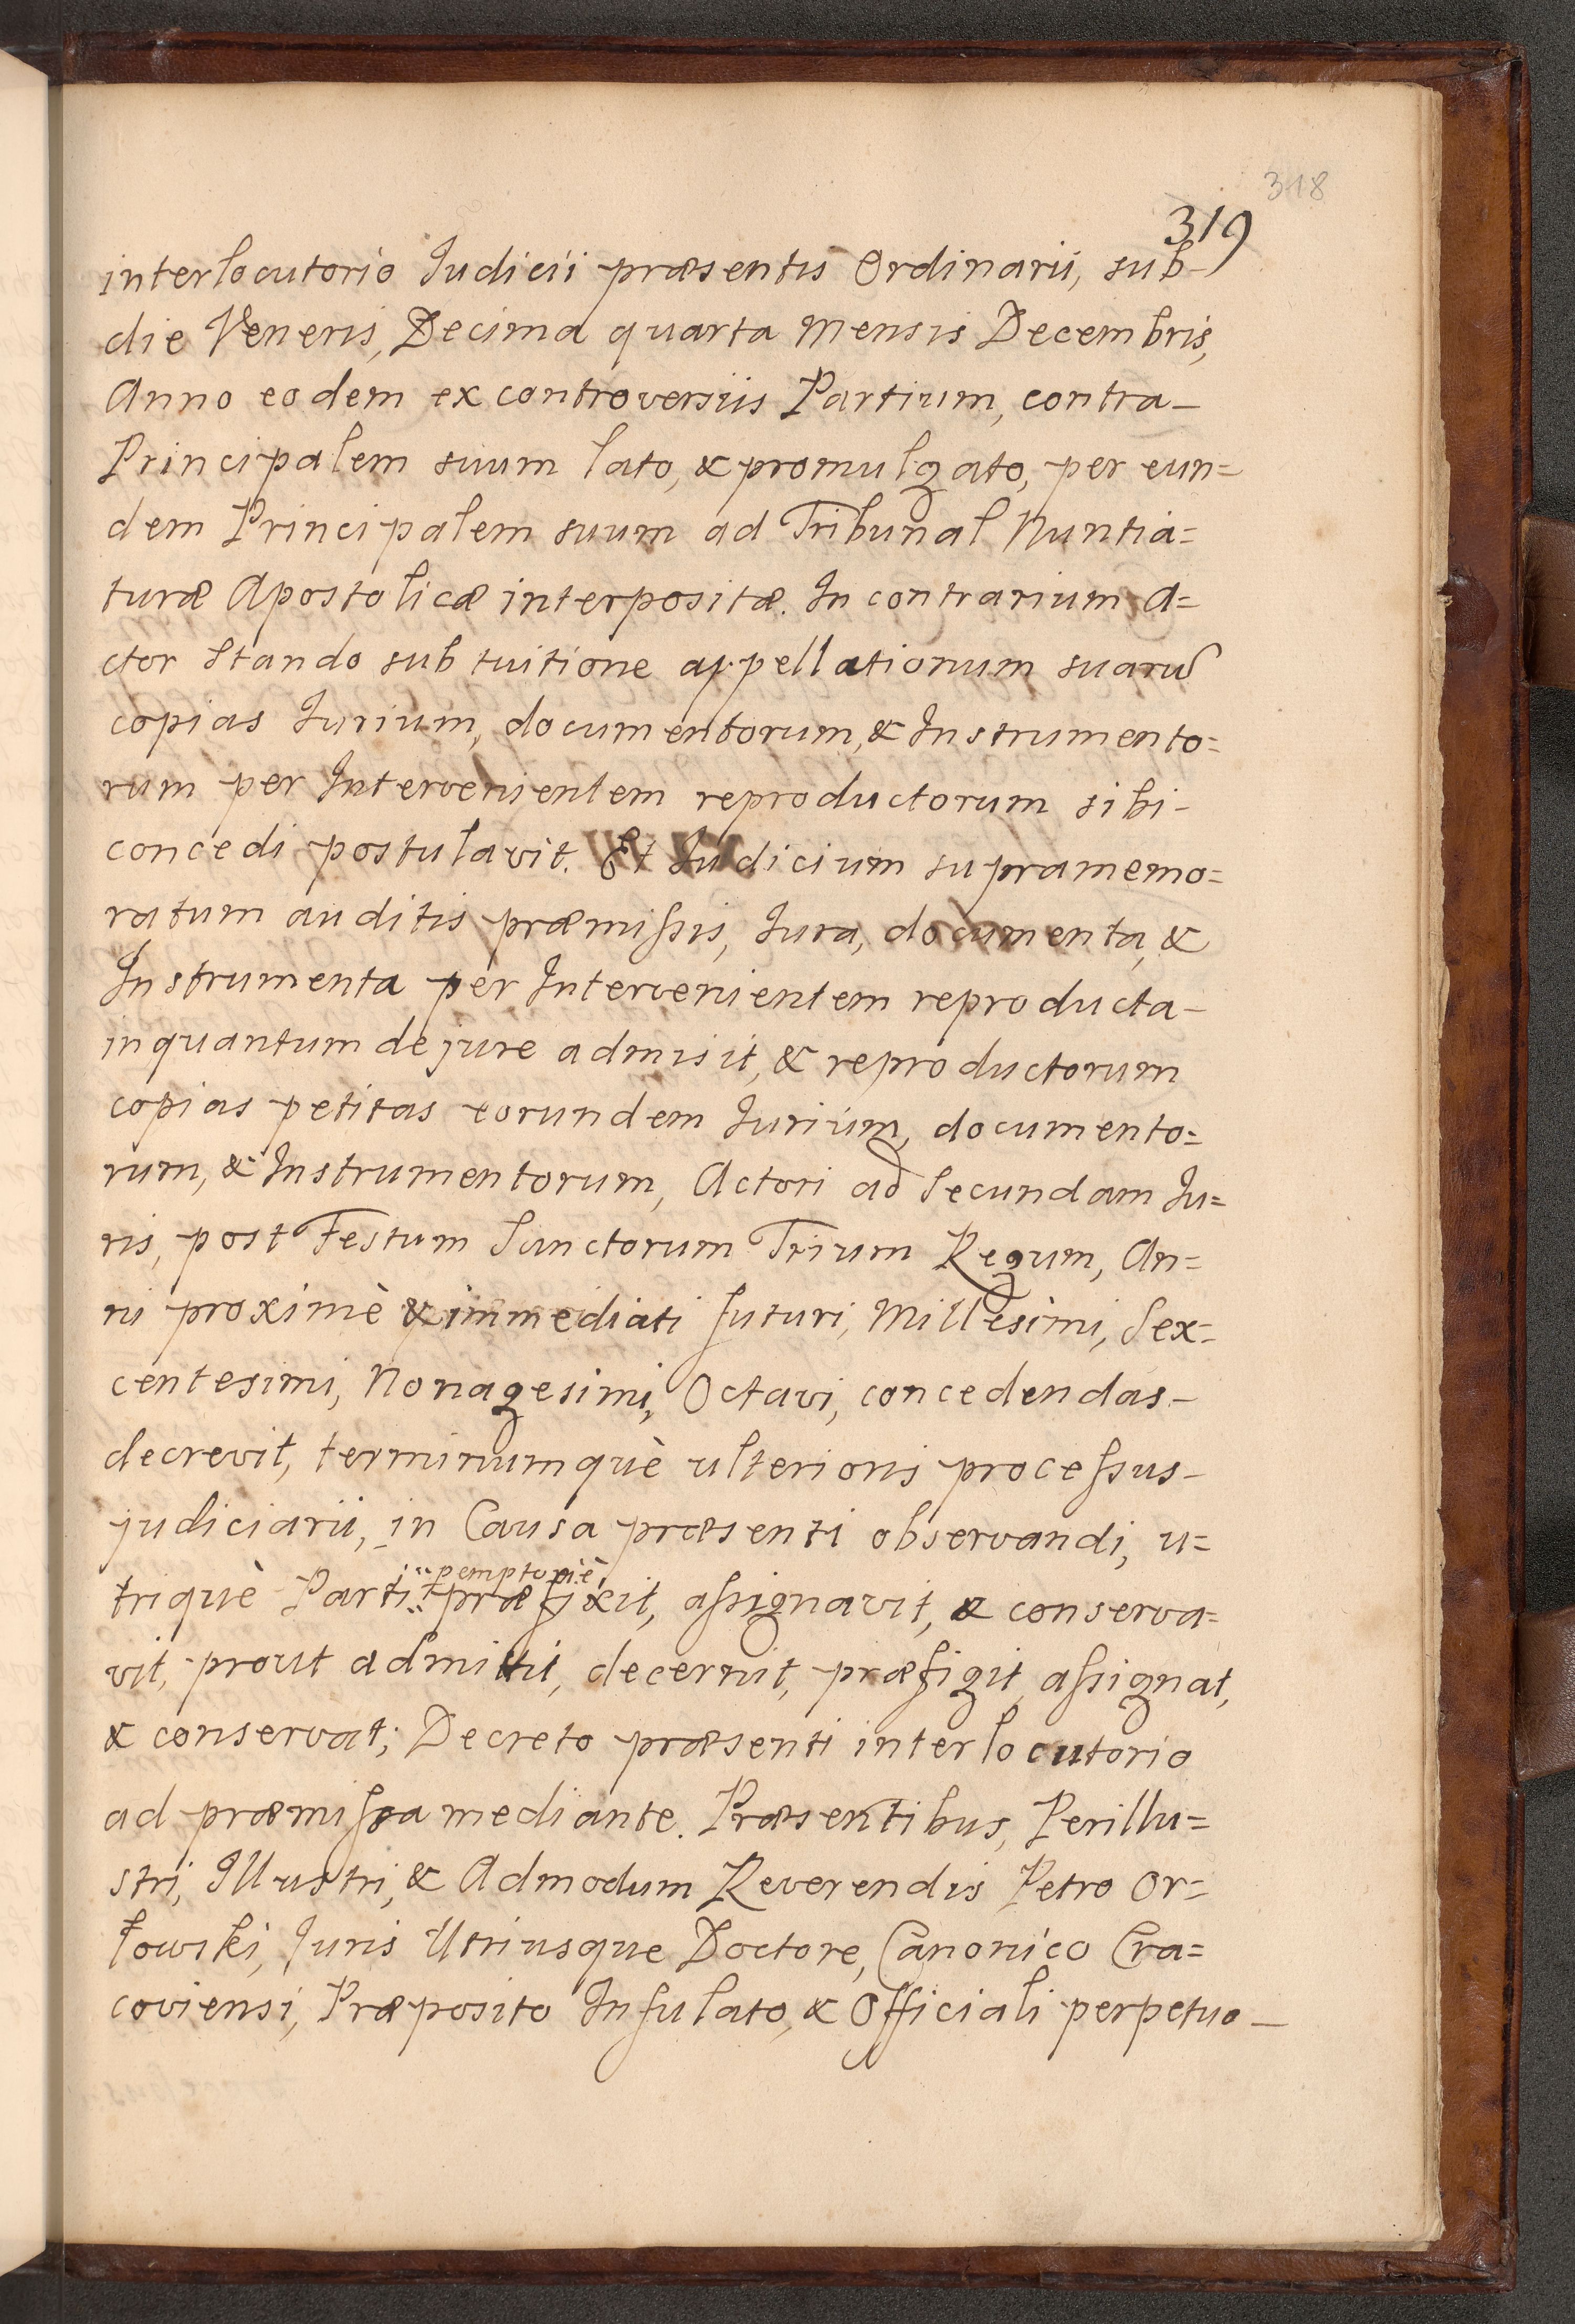 318
319
interlocutorio Judicii præsentis Ordinarii, sub-
die Veneris, Decima quarta Mensis Decembris,
Anno eodem ex controversiis Partium, contra-
Principalem suum lato, & promulgato, per eun=
dem Principalem suum ad Tribunal Nuntia=
turæ Apostolicæ interpositæ. In contrarium A=
ctor stando sub tuitione appellationum suarũ
copias Jurium, documentorum, & Instrumento=
rum per Intervenientem reproductorum sibi-
concedi postulavit. Et Judicium supramemo=
ratum auditis præmissis, Jura, documenta, &
Instrumenta per Intervenientem reproducta-
inquantum de jure admisit, & reproductorum
copias petitas eorundem Jurium, documento=
rum, & Instrumentorum, Actori ad Secundam Ju=
ris, post Festum Sanctorum Trium Regum, An=
ni proximè & immediati futuri, Millesimi, Sex=
centesimi, Nonagesimi, Octavi, concedendas-
decrevit, terminumquè ulterioris processus-
judiciarii, in Causa præsenti observandi, u=
triquè Parti præfixit, assignavit, & conserva=
vit, prout admittit, decernit, præfigit, assignat,
& conservat; Decreto præsenti interlocutorio
ad præmissa mediante. Præsentibus, Perillu=
stri, Illustri, & Admodum Reverendis Petro Or=
łowski, Juris Utriusque Doctore, Canonico Cra=
coviensi, Præposito Infulato, & Officiali perpetuo-